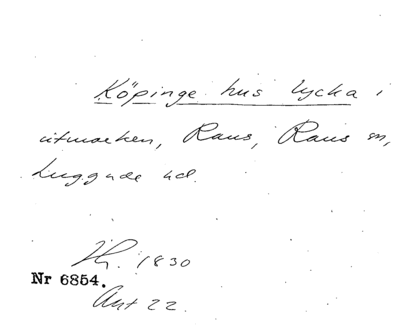 Köpinge hus lycka i
utmarken, Raus, Raus sn,
Luggude hd.
1830
Nr 6854.
Ant 22.